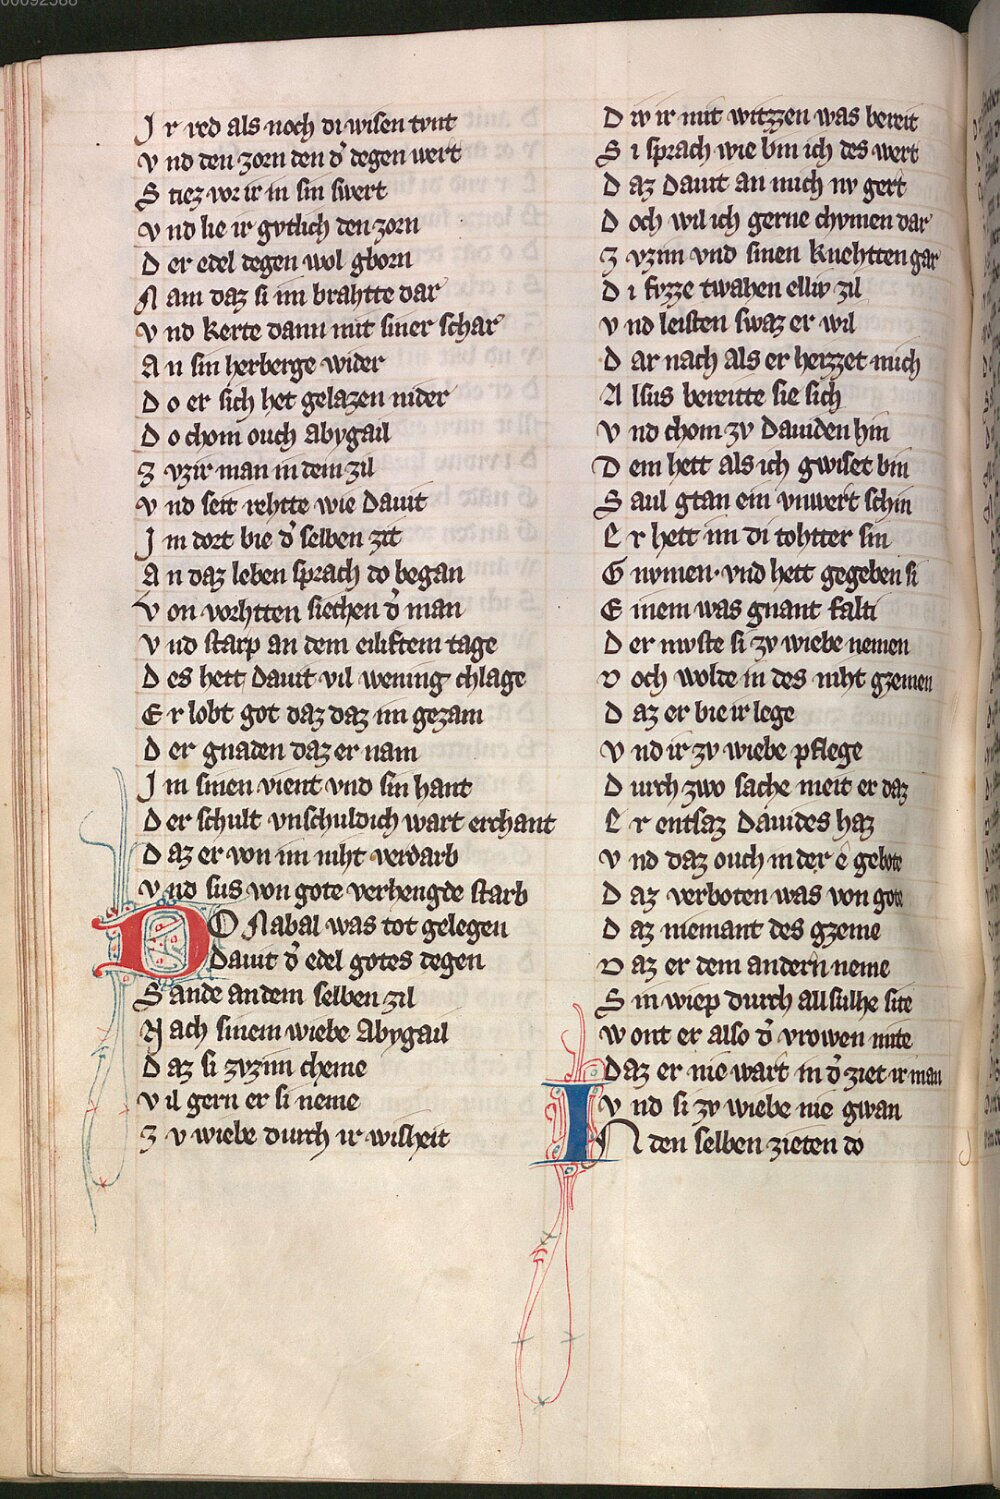 00092588
J r red als noch di wisen tvnt
v nd den zorn den d̕ degen wert
S tiez vor ir in sin swert
v nd lie ir gvtlich den zorn
D er edel degen wol gborn
N am daz si im brahtte dar
v nd kerte dann mit siner schar
A n sin herberge wider
D o er sich het gelazen nider
D o chom ouch Abygail
Z vzir man in dem zil
v nd seit rehtte wie Dauit
J m dort bie d̕ selben zit
A n daz leben sprach do began
V on vorhtten siechen d̕ man
v nd starp an dem eiliftem tage
D es hett Dauit vil wening chlage
E r lobt got daz daz im gezam
D er gnaden daz er nam
J m sinen vient vnd sin hant
D er schult vnschuldich wart erchant
D az er von im niht verdarb
v nd sus von gote verhengde starb
DO Nabal was tot gelegen
Dauit d̕ edel gotes degen
S ande an dem selben zil
N ach sinem wiebe Abygail
D az si zvzim cheme
v il gern er si neme
Z v wiebe durch ir wisheit
D iv ir mit witzzen was bereit
S i sprach wie bin ich des wert
D az Dauit an mich nv gert
D och wil ich gerne chvmen dar
Z vzim vnd sinen knehtten gar
D i fvzze twahen elliv zil
v nd leisten swaz er wil
D ar nach als er heizzet mich
A lsus bereitte sie sich
v nd chom zv Dauiden hin
D em hett als ich gwiset bin
S aul gtan ein vnwert schin
E r hett im di tohtter sin
G nvmen· vnd hett gegeben si
E inem was gnant falti
D er mvste si zv wiebe nemen
v och wolde in des niht gzemen
D az er bie ir lege
v nd ir zv wiebe pflege
D urch zwo sache meit er daz
E r entsaz Dauides haz
v nd daz ouch in der e gebote
D az verboten was von gote
D az niemant des gzeme
D az er dem andern neme
S in wiep durch all sulhe site
w ont er also d̕ vrowen mite
Daz er nie wart in d̕ ziet ir man
v nd si zv wiebe nie gwan
IN den selben zieten do